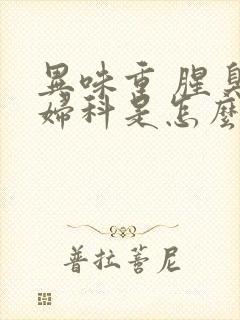 異味重 腥臭
婦科是怎麼
普拉蓍尼